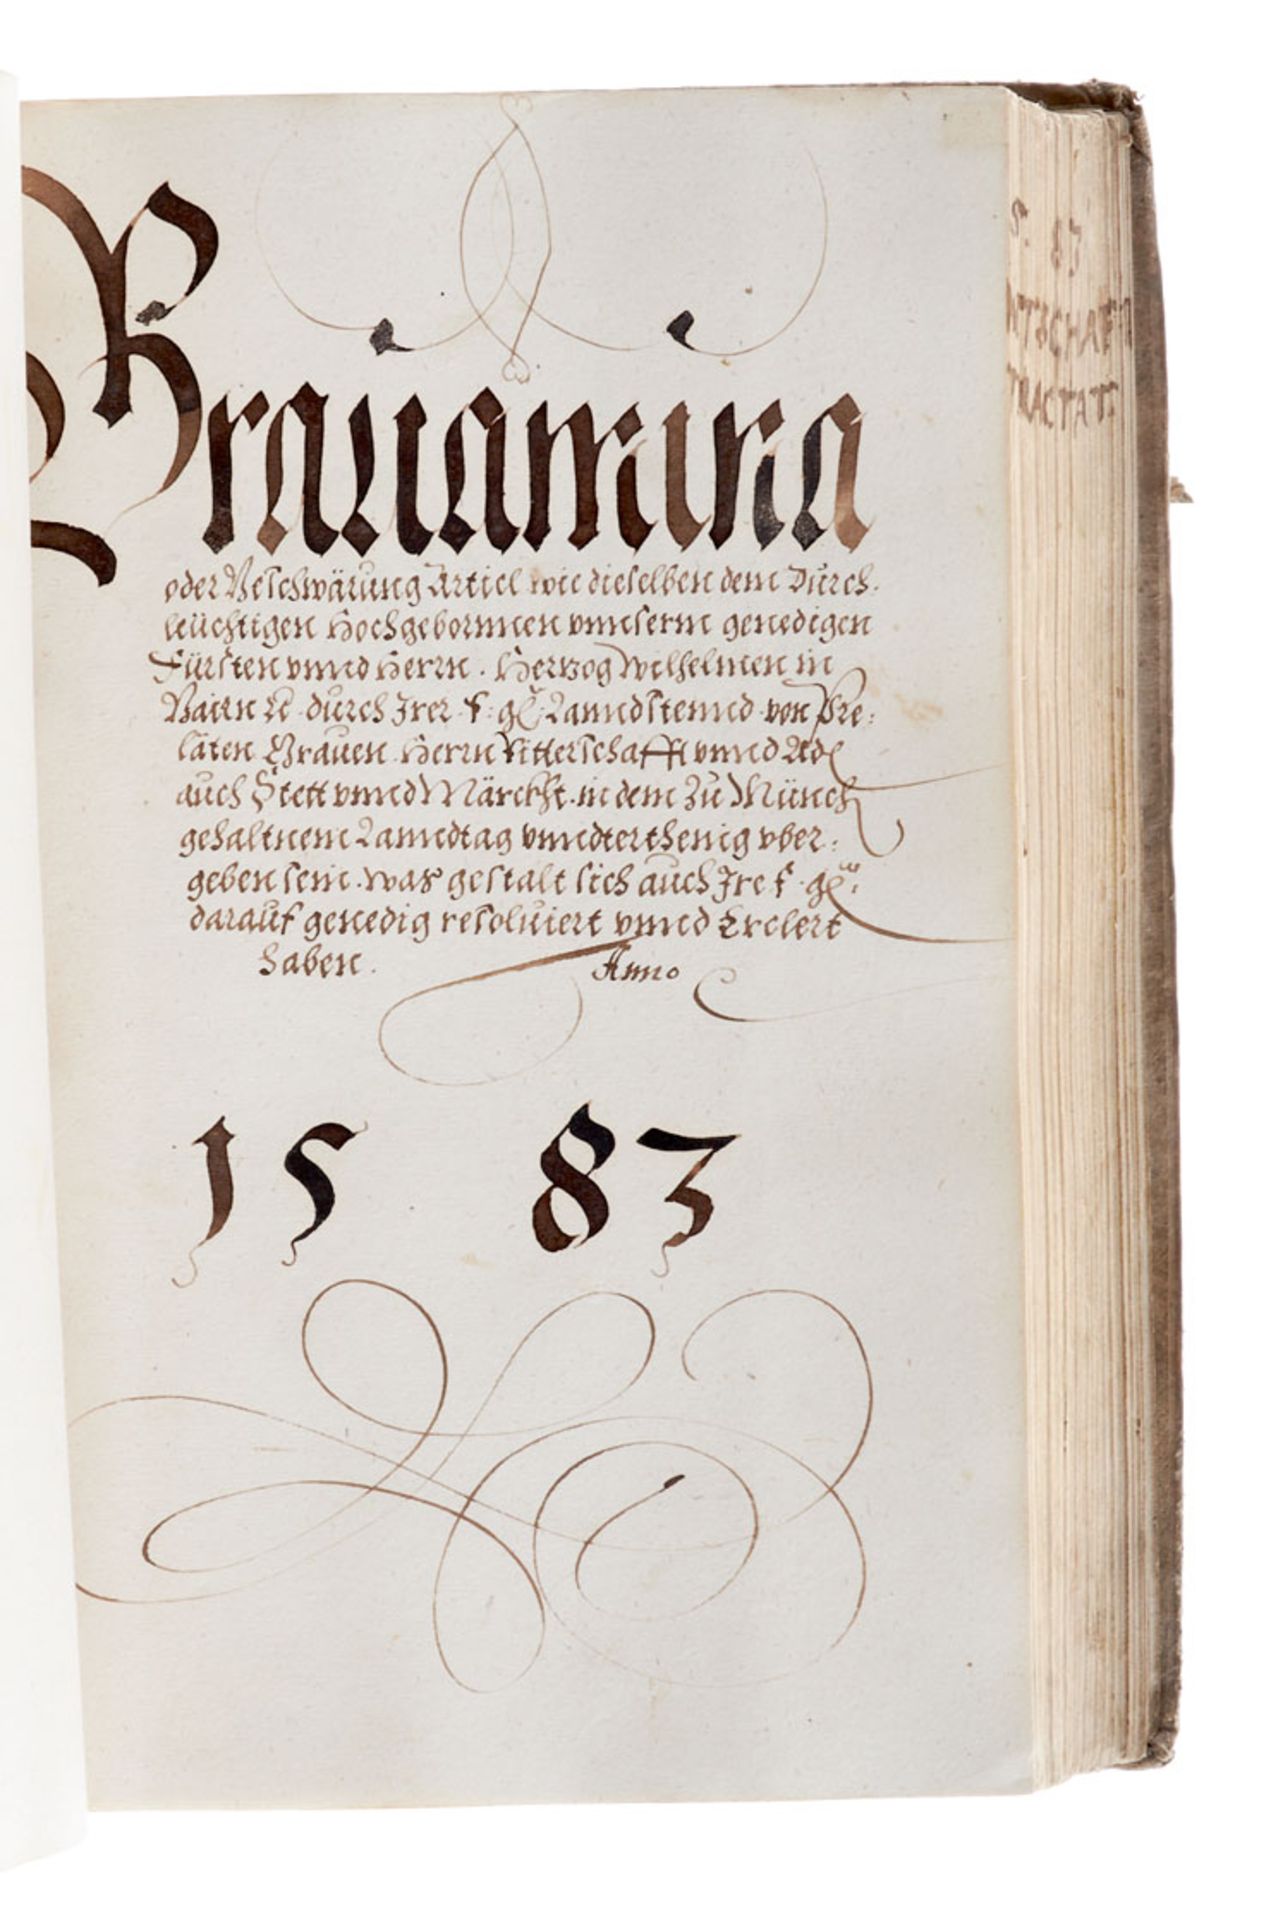 Grauamina
oder Beschwärung Articl wie dieselben dem Durch-
leüchtigen Hochgebornnen vnnserm genedigen
Fürsten vnnd Herrn. Hertzog Wilhelmen in
Bairn ꝛc durch Irer f: g: Lanndstennd von Pre:
läten Grauen Herrn Ritterschafft vnnd Adl
auch Stett vnnd Märckht. in dem zu Münch
gehaltnem Lanndtag vnndterthenig vber:
geben sein. was gestalt sich auch Ire f. g:
darauf genedig resoluiert vnnd Erclert
haben. Anno
1583
83
NTSCHAFT
TRACTAT: